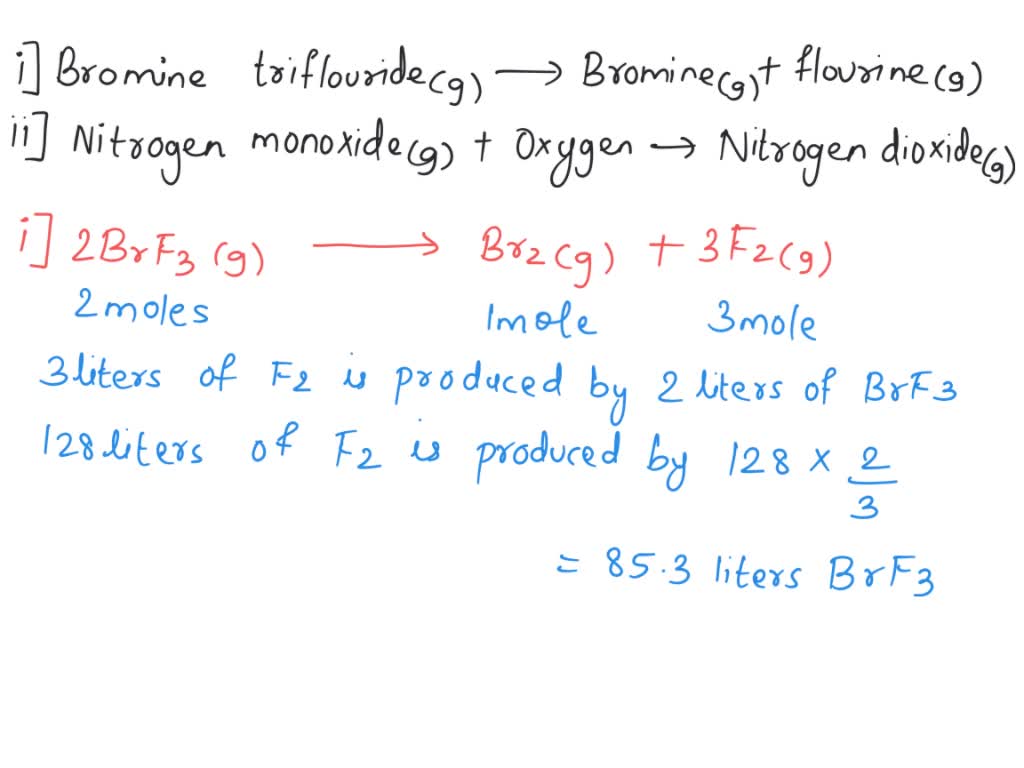 i] Bromine triflouride(g) ⟶ Bromine(g) + flourine(g)
ii] Nitrogen monoxide(g) + Oxygen → Nitrogen dioxide(g)
i] 2BrF3(g) ⟶ Br2(g) + 3F2(g)
2moles 1mole 3mole
3liters of F2 is produced by 2 liters of BrF3
128 liters of F2 is produced by 128 × 2/3
= 85.3 liters BrF3